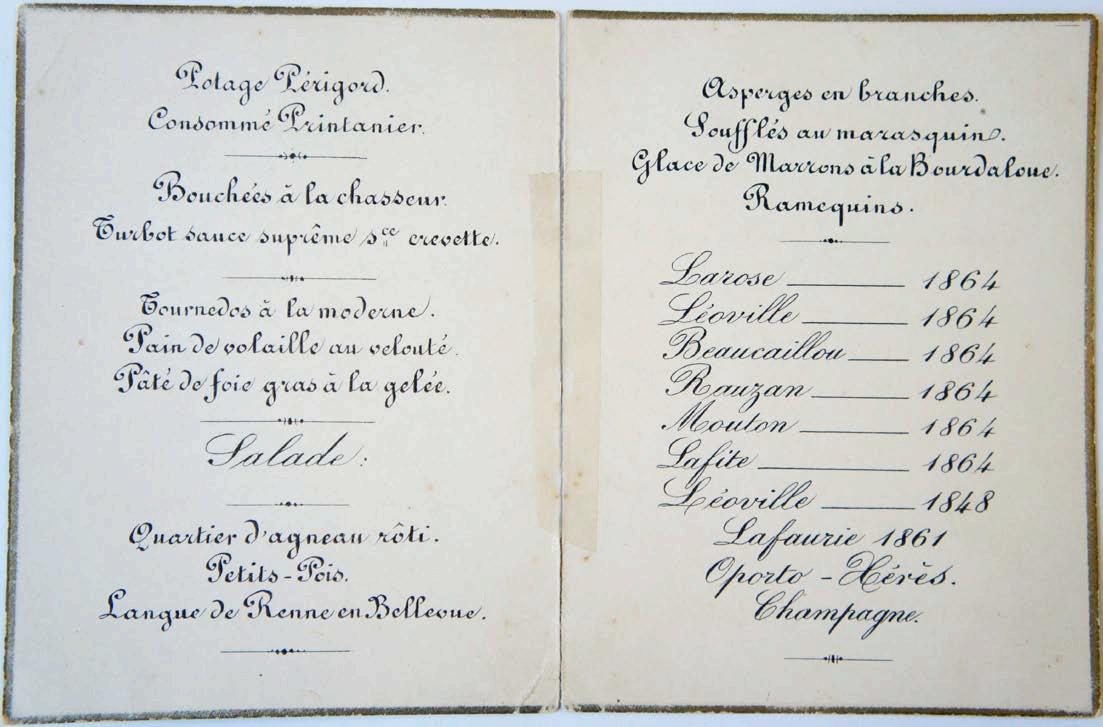 Potage Périgord.
Consommé Printanier.
Bouchées à la chasseur.
Turbot sauce suprême sce crevette.
Tournedos à la moderne.
Pain de volaille au velouté.
Pâté de foie gras à la gelée.
Salade:
Quartier d'agneau rôti.
Petits-Pois.
Langue de Renne en Bellevue.
Asperges en branches.
Soufflés au marasquin.
Glace de Marrons à la Bourdaloue.
Ramequins.
Larose 1864
Léoville 1864
Beaucaillou 1864
Rauzan 1864
Mouton 1864
Lafite 1864
Léoville 1848
Lafaurie 1861
Oporto - Xérès.
Champagne.